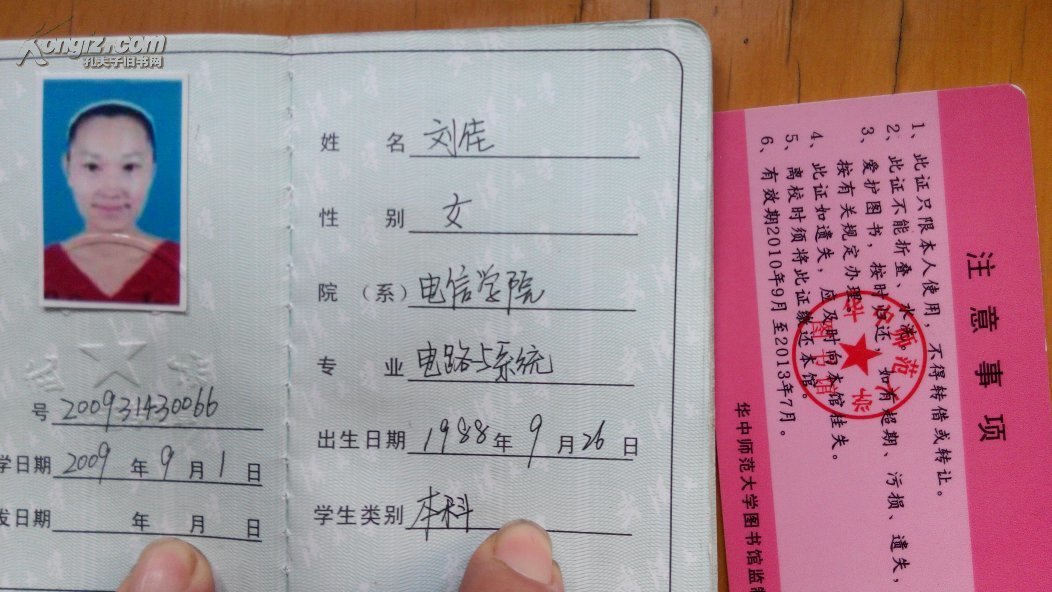 Kongfz.com
孔夫子旧书网
号 200931430066
学日期 2009 年 9 月 1 日
发日期 年 月 日
姓 名 刘佳
性 别 女
院 (系) 电信学院
专 业 电路与系统
出生日期 1988 年 9 月 26 日
学生类别 本科
注意事项
1、此证只限本人使用，不得转借或转让。
2、此证不能折叠、水渍。
3、爱护图书，按时归还，如有超期、污损、遗失，
按有关规定办理。
4、此证如遗失，应及时向本馆挂失。
5、离校时须将此证缴还本馆。
6、有效期2010年9月至2013年7月。
华中师范大学图书馆监制